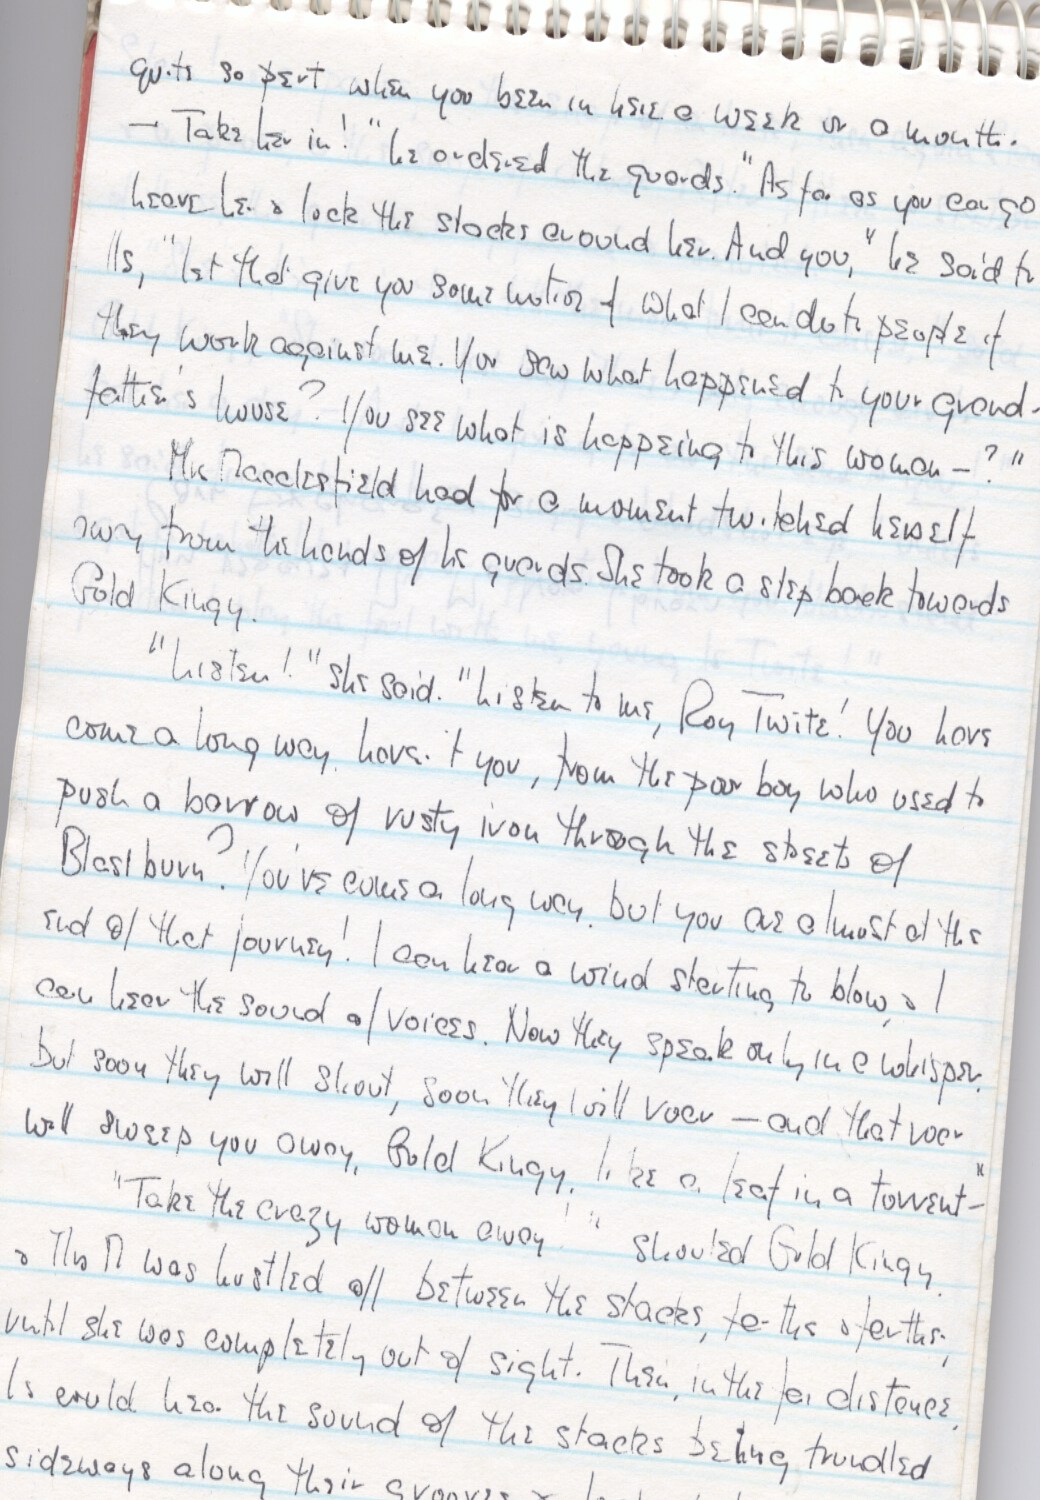 quite so pert when you been in here a week or a month.
— Take her in!" he ordered the guards. "As far as you can go
leave her & lock the stacks around her. And you," he said to
Is, "let that give you some notion of what I can do to people if
they work against me. You saw what happened to your grand-
father's house? You see what is happening to this woman — ?"
Mrs Macclesfield had for a moment twitched herself
away from the hands of he guards. She took a step back towards
Gold Kingy.
"Listen!" she said. "Listen to me, Roy Twite! You have
come a long way, haven't you, from the poor boy who used to
push a barrow of rusty iron through the streets of
Blastburn? You've come a long way, but you are almost at the
end of that journey! I can hear a wind starting to blow, & I
can hear the sound of voices. Now they speak only in a whisper,
but soon they will shout, soon they will roar — and that roar
will sweep you away, Gold Kingy, like a leaf in a torrent —"
"Take the crazy woman away!" shouted Gold Kingy.
& Mrs M was hustled off between the stacks, farther & farther,
until she was completely out of sight. Then, in the far distance,
Is could hear the sound of the stacks being trundled
sideways along their grooves &